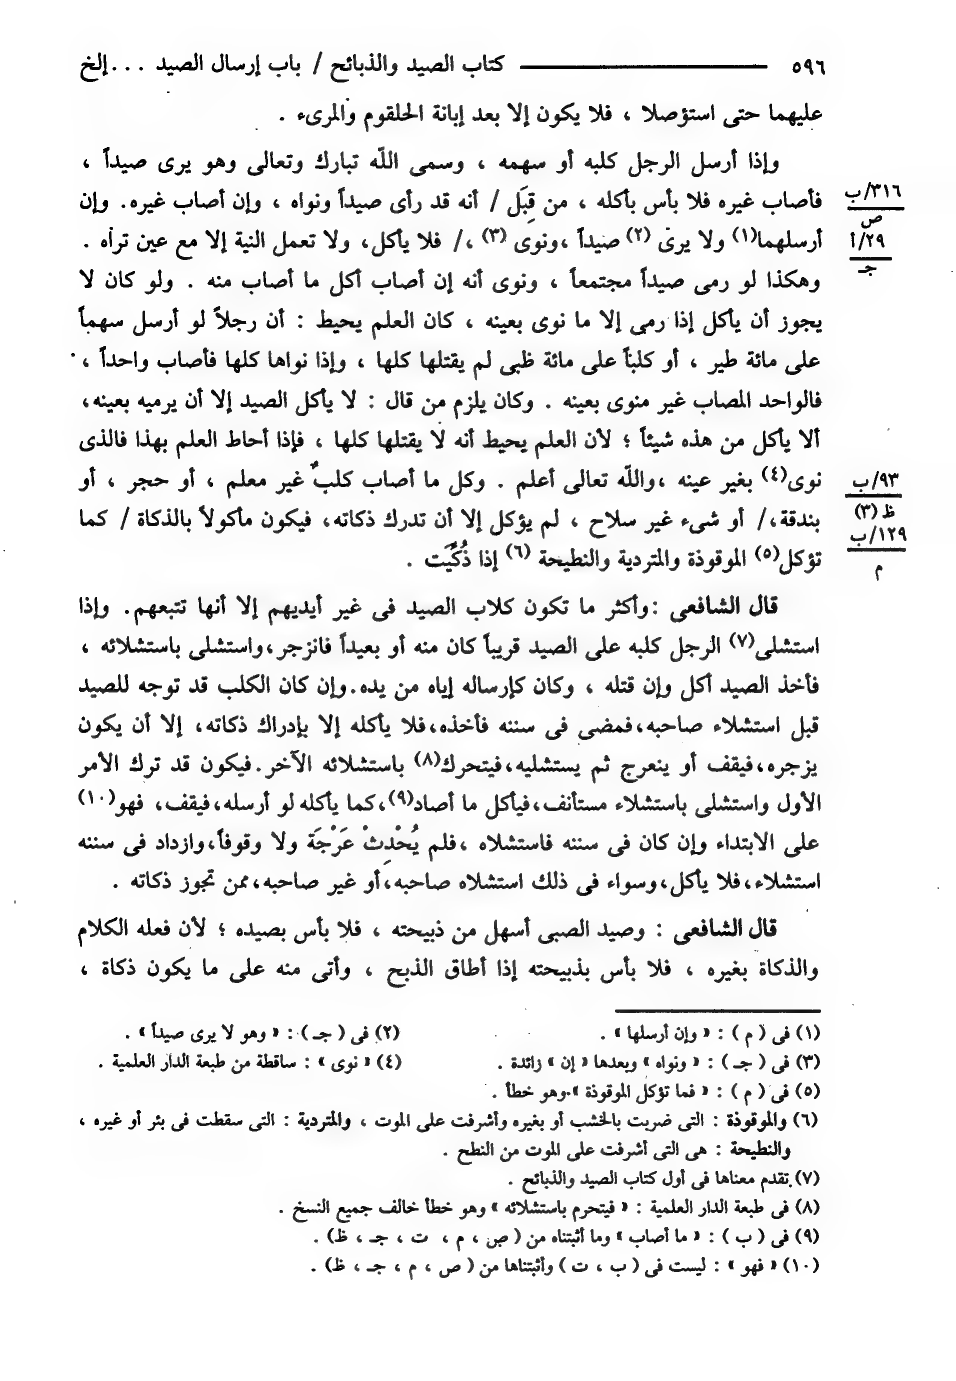 ٥٩٦ ــــــــــــــ كتاب الصيد والذبائح / باب إرسال الصيد ... إلخ
عليهما حتى استؤصلا ، فلا يكون إلا بعد إبانة الحلقوم والمرىء .
وإذا أرسل الرجل كلبه أو سهمه ، وسمى اللّه تبارك وتعالى وهو يرى صيداً ،
فأصاب غيره فلا بأس بأكله ، من قِبَل / أنه قد رأى صيداً ونواه ، وإن أصاب غيره. وإن
٣١٦/ب
ص
أرسلهما(١) ولا يرى (٢) صيداً ،ونوى (٣) ،/ فلا يأكل، ولا تعمل النية إلا مع عين تراه .
٢٩/أ
جـ
وهكذا لو رمى صيداً مجتمعاً ، ونوى أنه إن أصاب أكل ما أصاب منه . ولو كان لا
يجوز أن يأكل إذا رمى إلا ما نوى بعينه ، كان العلم يحيط : أن رجلاً لو أرسل سهماً
على مائة طير ، أو كلباً على مائة ظبى لم يقتلها كلها ، وإذا نواها كلها فأصاب واحداً ،
فالواحد المصاب غير منوى بعينه . وكان يلزم من قال : لا يأكل الصيد إلا أن يرميه بعينه،
ألا يأكل من هذه شيئاً ؛ لأن العلم يحيط أنه لا يقتلها كلها ، فإذا أحاط العلم بهذا فالذى
نوى(٤) بغير عينه ،واللّه تعالى أعلم . وكل ما أصاب كلبٌ غير معلم ، أو حجر ، أو
٩٣/ب
ظ (٣)
بندقة،/ أو شىء غير سلاح ، لم يؤكل إلا أن تدرك ذكاته، فيكون مأكولاً بالذكاة / كما
١٢٩/ب
م
تؤكل(٥) الموقوذة والمتردية والنطيحة (٦) إذا ذُكِّيَت .
قال الشافعى :وأكثر ما تكون كلاب الصيد فى غير أيديهم إلا أنها تتبعهم. وإذا
استشلى(٧) الرجل كلبه على الصيد قريباً كان منه أو بعيداً فانزجر،واستشلى باستشلائه ،
فأخذ الصيد أكل وإن قتله ، وكان كإرساله إياه من يده.وإن كان الكلب قد توجه للصيد
قبل استشلاء صاحبه،فمضى فى سننه فأخذه،فلا يأكله إلا بإدراك ذكاته، إلا أن يكون
يزجره،فيقف أو ينعرج ثم يستشليه،فيتحرك(٨) باستشلائه الآخر.فيكون قد ترك الأمر
الأول واستشلى باستشلاء مستأنف،فيأكل ما أصاد(٩)،كما يأكله لو أرسله،فيقف، فهو(١٠)
على الابتداء وإن كان فى سننه فاستشلاه ،فلم يُحْدِثْ عَرْجَة ولا وقوفاً،وازداد فى سننه
استشلاء،فلا يأكل،وسواء فى ذلك استشلاه صاحبه،أو غير صاحبه،ممن تجوز ذكاته .
قال الشافعى : وصيد الصبى أسهل من ذبيحته ، فلا بأس بصيده ؛ لأن فعله الكلام
والذكاة بغيره ، فلا بأس بذبيحته إذا أطاق الذبح ، وأتى منه على ما يكون ذكاة ،
(١) فى ( م ) : « وإن أرسلها » . (٢) فى ( جـ ) : « وهو لا يرى صيداً » .
(٣) فى ( جـ ) : « ونواه » وبعدها « إن » زائدة . (٤) « نوى » : ساقطة من طبعة الدار العلمية .
(٥) فى ( م ) : « فما تؤكل الموقوذة » وهو خطأ .
(٦) والموقوذة : التى ضربت بالخشب أو بغيره وأشرفت على الموت ، والمتردية : التى سقطت فى بئر أو غيره ،
والنطيحة : هى التى أشرفت على الموت من النطح .
(٧) تقدم معناها فى أول كتاب الصيد والذبائح .
(٨) فى طبعة الدار العلمية : « فيتحرم باستشلائه » وهو خطأ خالف جميع النسخ .
(٩) فى ( ب ) : « ما أصاب » وما أثبتناه من ( ص ، م ، ت ، جـ ، ظ) .
(١٠) « فهو » : ليست فى ( ب ، ت ) وأثبتناها من ( ص ، م ، جـ ، ظ) .